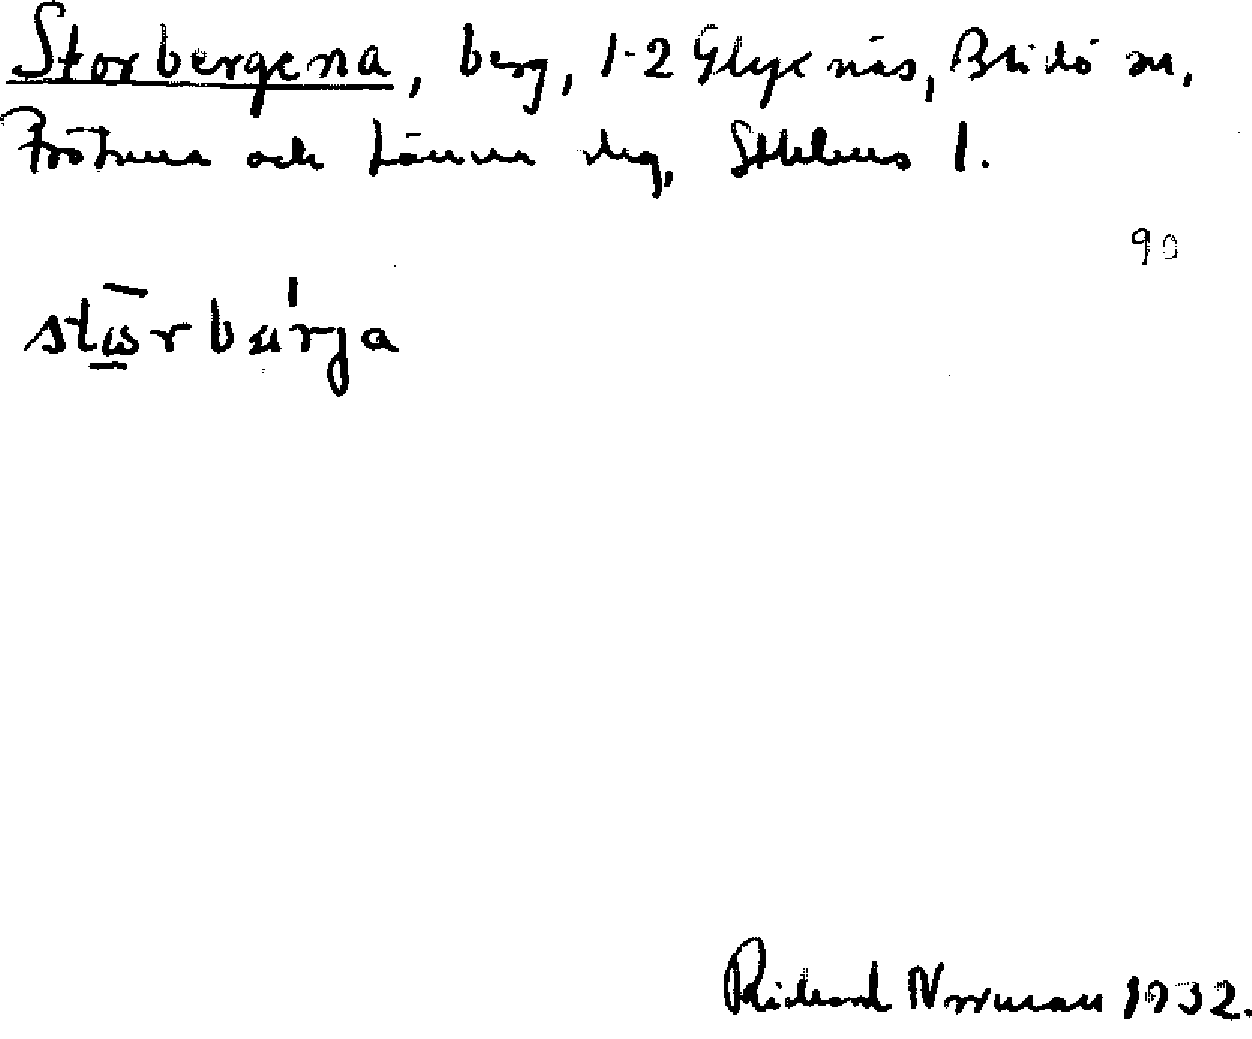 Storbergena, berg, 1-2 Glyxnäs, Blidö sn,
Frötuna och Länna slg, Sthlms l.
90
stωrbærja
Richard Norrman 1932.